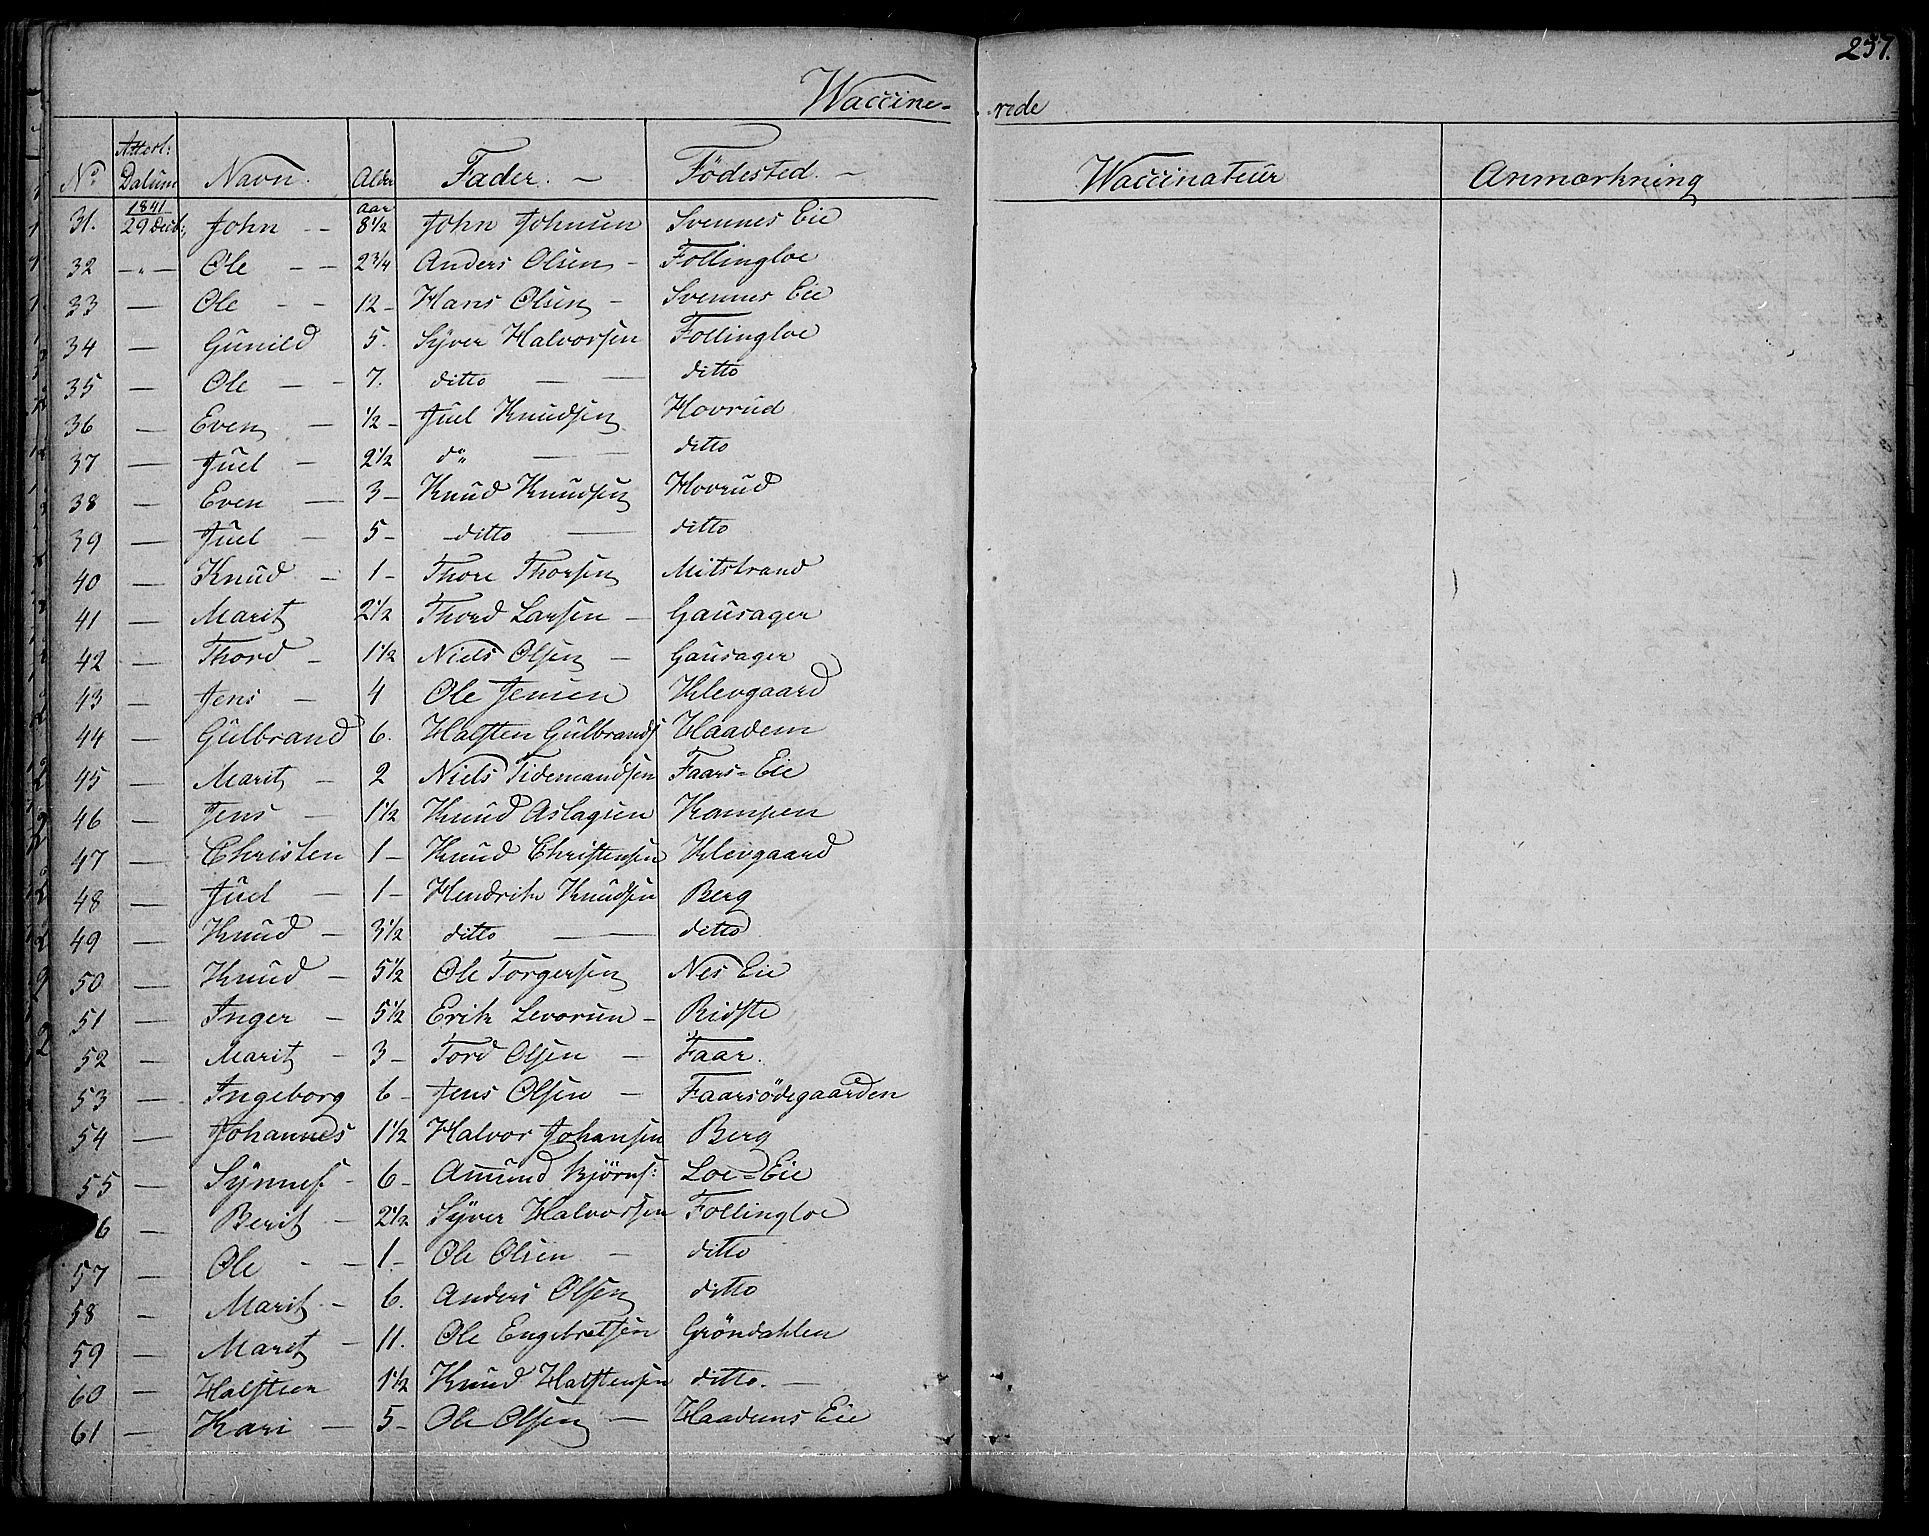 237.
Waccine- -rede
No Attest: Datum Navn. Alder Fader. Födested. Waccinateur Anmærkning
1841 Aar
31. 29 Decb: John 8½ John Johnsen Svennes Eie
32 -"- Ole 2¾ Anders Olsen Follingloe
33 — Ole 12 Hans Olsen Svennes Eie
34 — Gunild 5. Syver Halvorsen Follingloe
35 — Ole 7. ditto ditto
36 — Even ½ Juel Knudsen Hovrud
37 — Juel 2½ do ditto
38 — Even 3 Knud Knudsen Hovrud
39 — Juel 5 ditto ditto
40 — Knud 1 Thore Thorsen Mitstrand
41 — Marit 2½ Thord Larsen Gausager
42 — Thord 1½ Niels Olsen Gausager
43 — Jens 4 Ole Jensen Klevgaard
44 — Gulbrand 6. Halsten Gulbrands Haadem
45 — Marit 2 Niels Tidemandsen Faars-Eie
46 — Jens 1½ Knud Aslagsen Kampen
47 — Christen 1 Knud Christensen Klevgaard
48 — Juel 1 Hendrik Knudsen Berg
49 — Knud 3½ ditto ditto
50 — Knud 5½ Ole Torgersen Nes Eie
51 — Inger 5½ Erik Levorsen Ridste
52 — Marit 3 Tord Olsen Faar.
53 — Ingeborg 6 Jens Olsen Faarsödegaarden
54 — Johannes 1½ Halvor Johansen Berg
55 — Synnef 6 Amund Björns: Loe-Eie
56 — Berit 2½ Syver Halvorsen Follingloe
57 — Ole 1 Ole Olsen ditto
58 — Marit 6. Anders Olsen ditto
59 — Maret 11. Ole Engebretsen Gröndahlen
60 — Halsteen 1½ Knud Halstensen ditto.
61 — Kari 5 Ole Olsen Haadems Eie